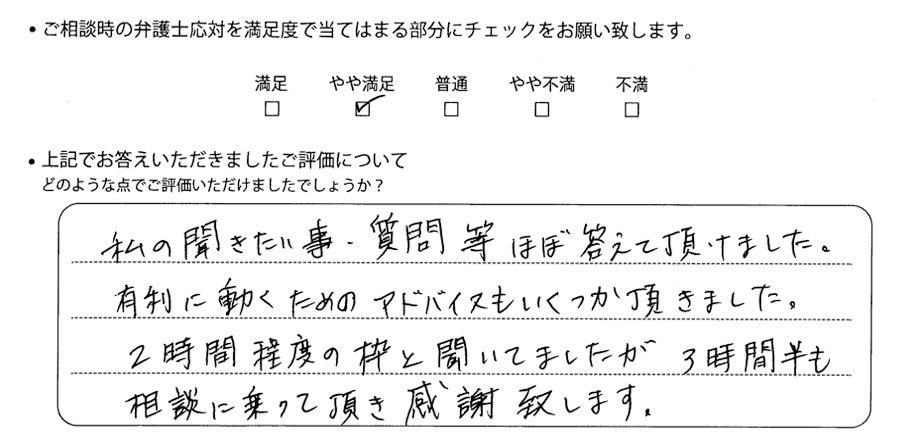 ・ご相談時の弁護士応対を満足度で当てはまる部分にチェックをお願い致します。
満足 やや満足 普通 やや不満 不満
・上記でお答えいただきましたご評価について
どのような点でご評価いただけましたでしょうか？
私の聞きたい事・質問等ほぼ答えて頂けました。
有利に動くためのアドバイスもいくつか頂きました。
2時間程度の枠と聞いてましたが3時間半も
相談に乗って頂き感謝致します。